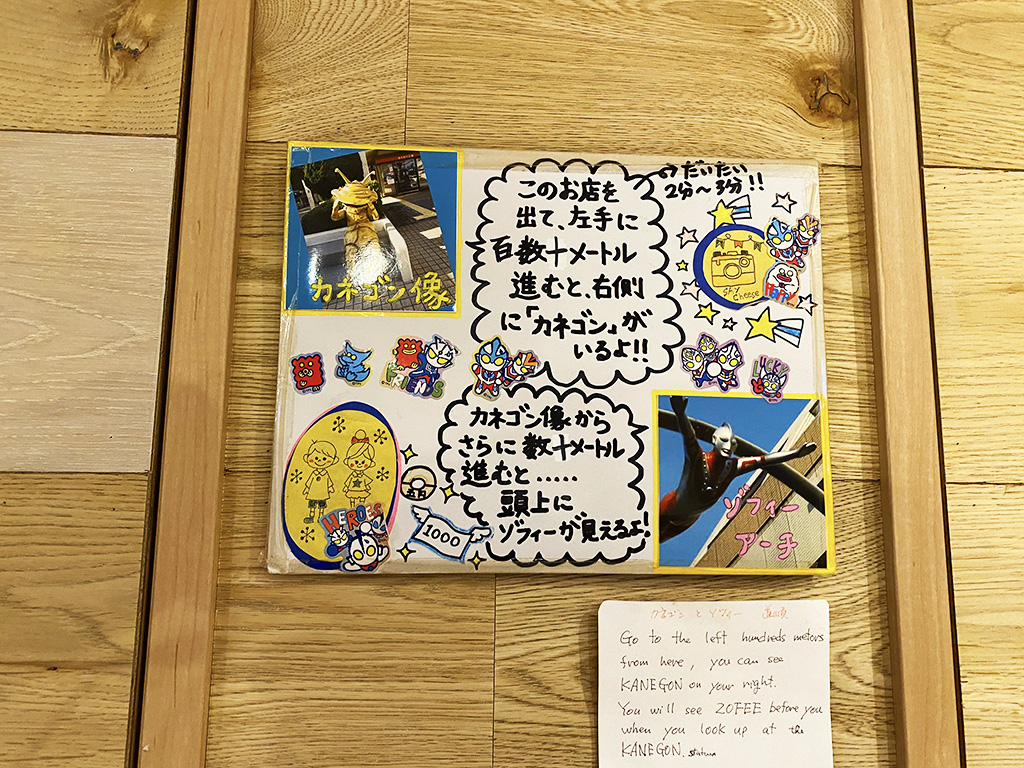 カネゴン像
このお店を
出て、左手に
百数十メートル
進むと、右側
に「カネゴン」が
いるよ!!
だいたい
2分〜3分!!
Say Cheese
HAPPY
FRIENDS
LUCKY
カネゴン像から
さらに数十メートル
進むと.....
頭上に
ゾフィーが見えるよ!
HEROES
1000
ゾフィー
アーチ
カネゴンとゾフィー
Go to the left hundreds meters
from here, you can see
KANEGON on your right.
You will see ZOFEE before you
when you look up at the
KANEGON. statue